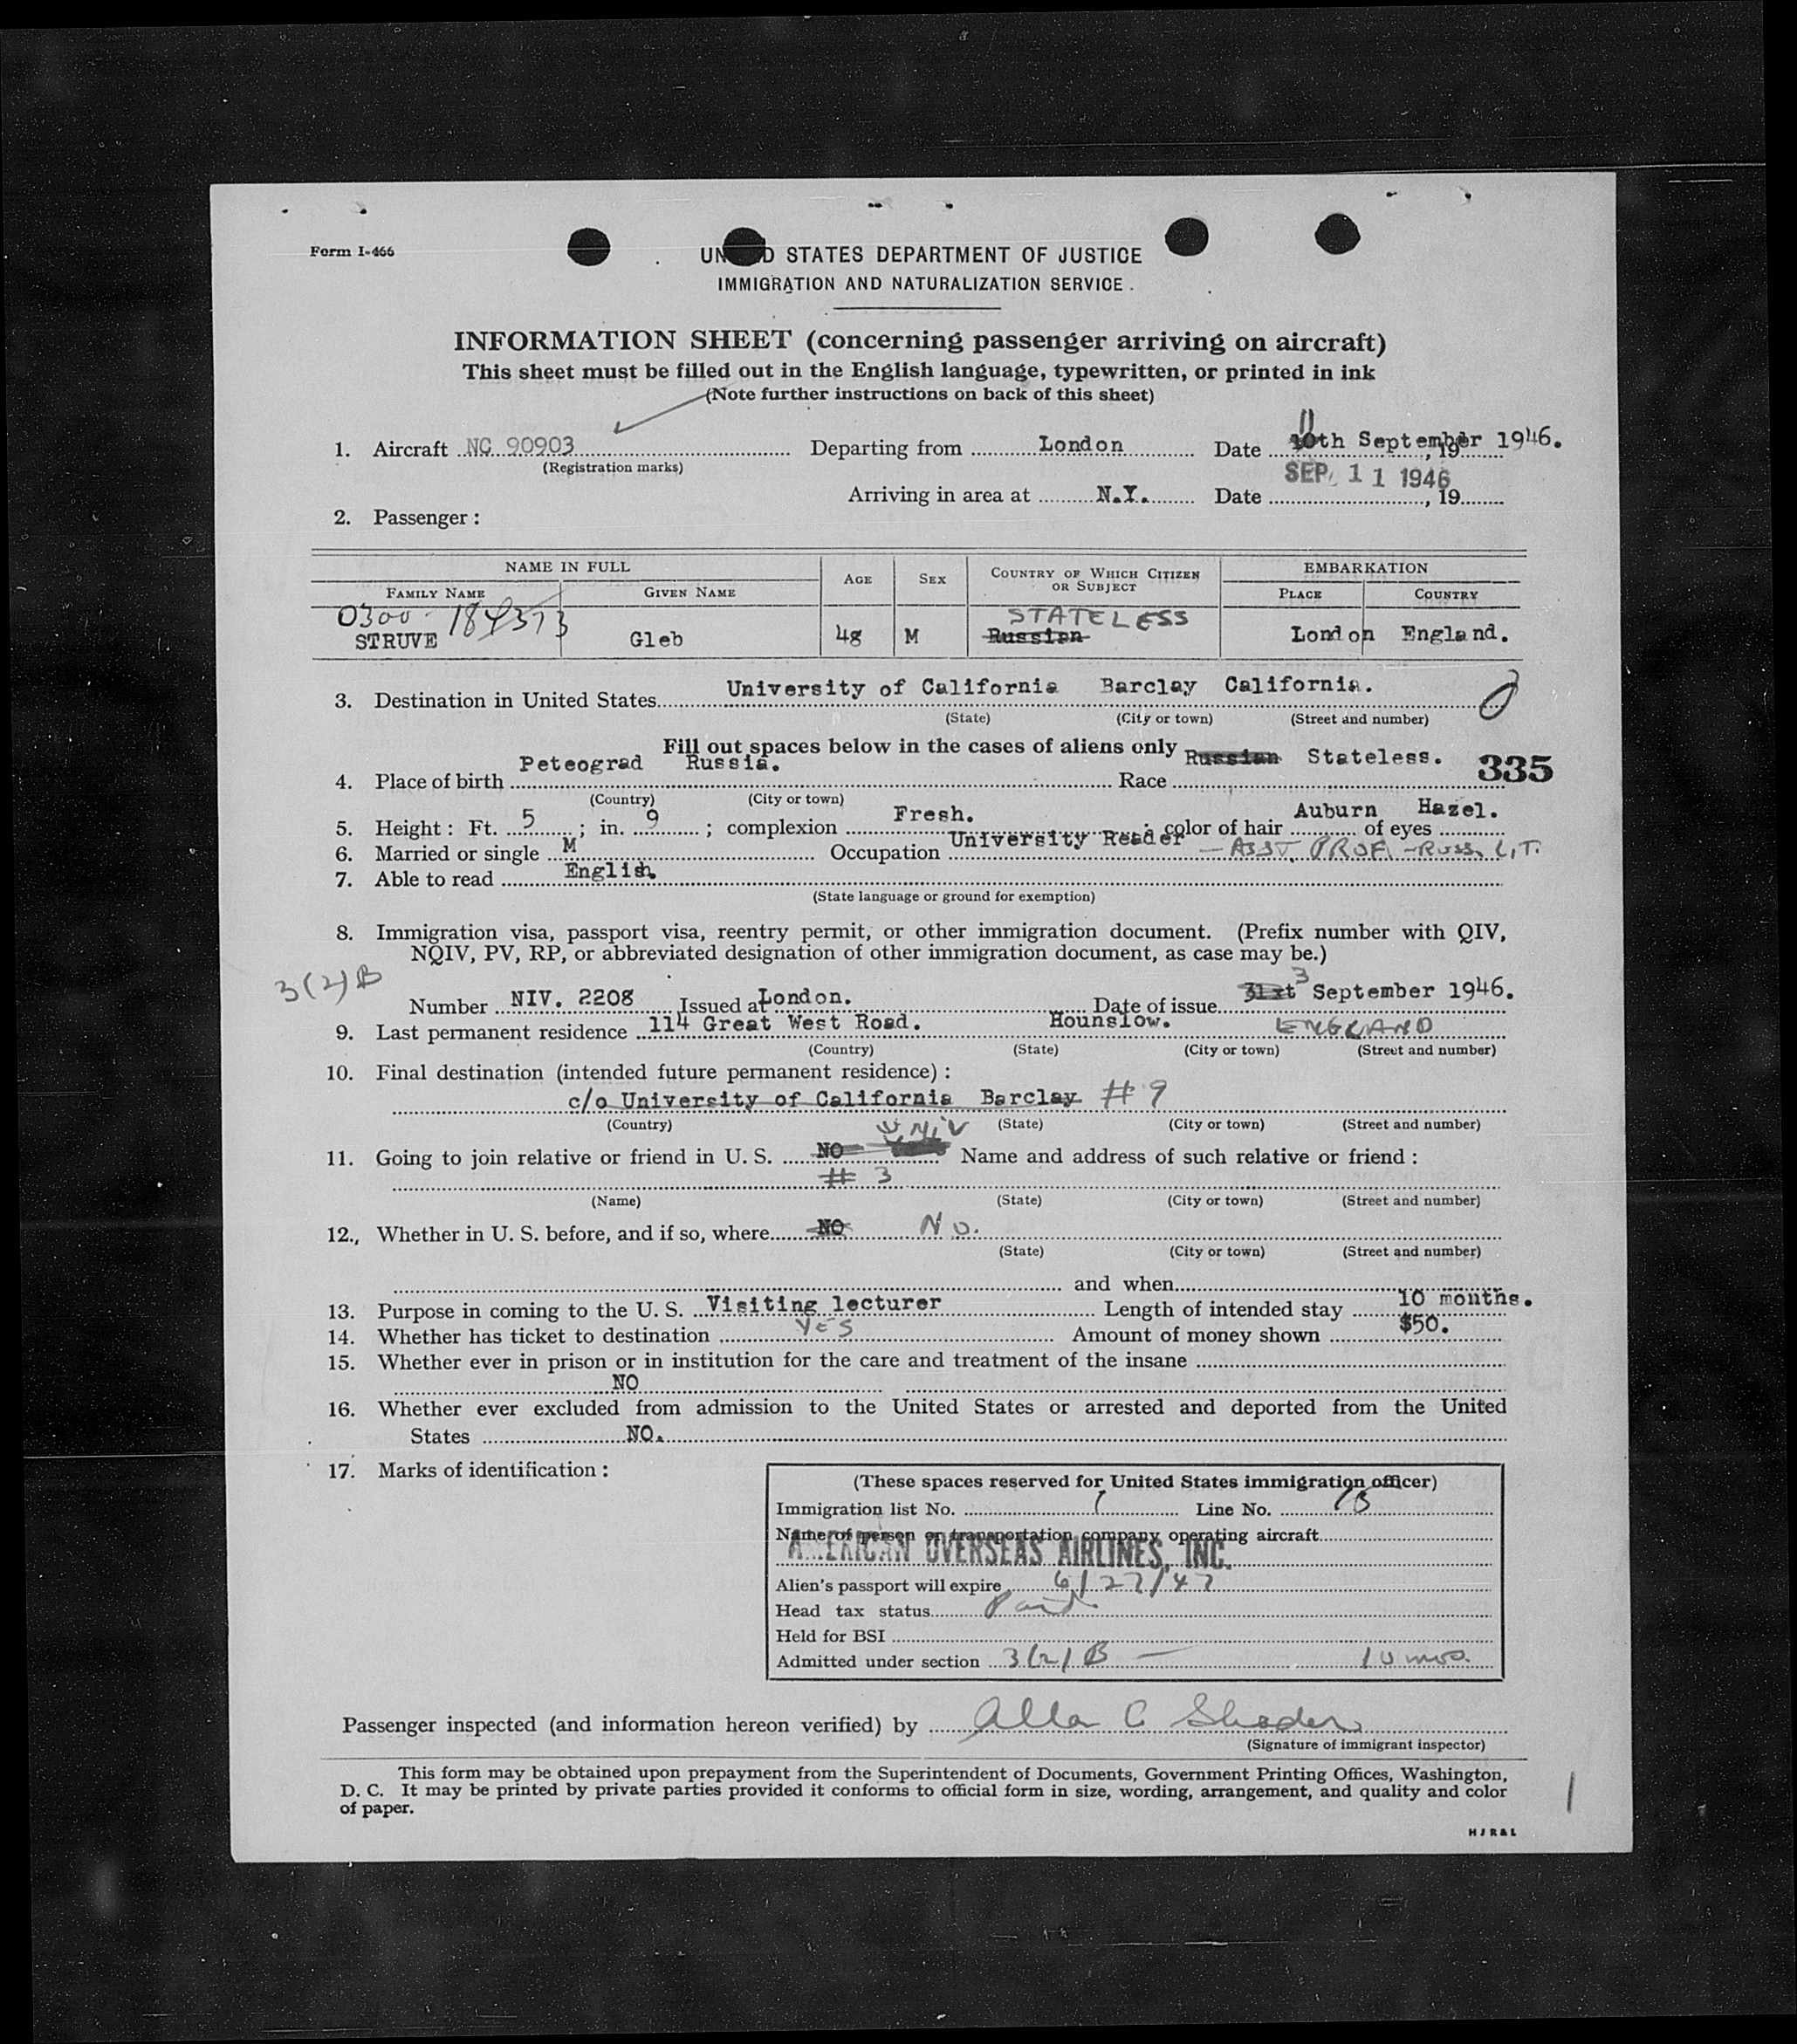 Form I-466
UNITED STATES DEPARTMENT OF JUSTICE
IMMIGRATION AND NATURALIZATION SERVICE.
INFORMATION SHEET (concerning passenger arriving on aircraft)
This sheet must be filled out in the English language, typewritten, or printed in ink
(Note further instructions on back of this sheet)
11
1. Aircraft NC 90903 Departing from London Date 10th September 1946. , 19
(Registration marks)
SEP 11 1946
Arriving in area at N.Y. Date , 19
2. Passenger:
NAME IN FULL AGE SEX COUNTRY OF WHICH CITIZEN OR SUBJECT EMBARKATION
FAMILY NAME GIVEN NAME PLACE COUNTRY
0300 - 184373 STATELESS
STRUVE Gleb 48 M Russian London England.
3. Destination in United States University of California Barclay California.
(State) (City or town) (Street and number)
Fill out spaces below in the cases of aliens only
335
4. Place of birth Peteograd Russia. Race Russian Stateless.
(Country) (City or town)
5. Height: Ft. 5; in. 9; complexion Fresh.; color of hair Auburn of eyes Hazel.
6. Married or single M Occupation University Reader - ASST. PROF. - RUSS. LIT.
7. Able to read English.
(State language or ground for exemption)
8. Immigration visa, passport visa, reentry permit, or other immigration document. (Prefix number with QIV,
NQIV, PV, RP, or abbreviated designation of other immigration document, as case may be.)
3(2)B
Number NIV. 2208 Issued at London. Date of issue 31st 3 September 1946.
9. Last permanent residence 114 Great West Road. Hounslow. ENGLAND
(Country) (State) (City or town) (Street and number)
10. Final destination (intended future permanent residence):
c/o University of California Barclay # 9
(Country) (State) (City or town) (Street and number)
UNIV
11. Going to join relative or friend in U. S. NO Name and address of such relative or friend:
# 3
(Name) (State) (City or town) (Street and number)
12., Whether in U. S. before, and if so, where NO No.
(State) (City or town) (Street and number)
and when
13. Purpose in coming to the U. S. Visiting lecturer Length of intended stay 10 months.
14. Whether has ticket to destination YES Amount of money shown $50.
15. Whether ever in prison or in institution for the care and treatment of the insane
NO
16. Whether ever excluded from admission to the United States or arrested and deported from the United
States NO.
17. Marks of identification:
(These spaces reserved for United States immigration officer)
Immigration list No. 1 Line No. 13
Name of person or transportation company operating aircraft
AMERICAN OVERSEAS AIRLINES, INC.
Alien's passport will expire 6/27/47
Head tax status Paid
Held for BSI
Admitted under section 3(2)B — 10 mos.
Passenger inspected (and information hereon verified) by
(Signature of immigrant inspector)
This form may be obtained upon prepayment from the Superintendent of Documents, Government Printing Offices, Washington,
D. C. It may be printed by private parties provided it conforms to official form in size, wording, arrangement, and quality and color
of paper.
H J R & L